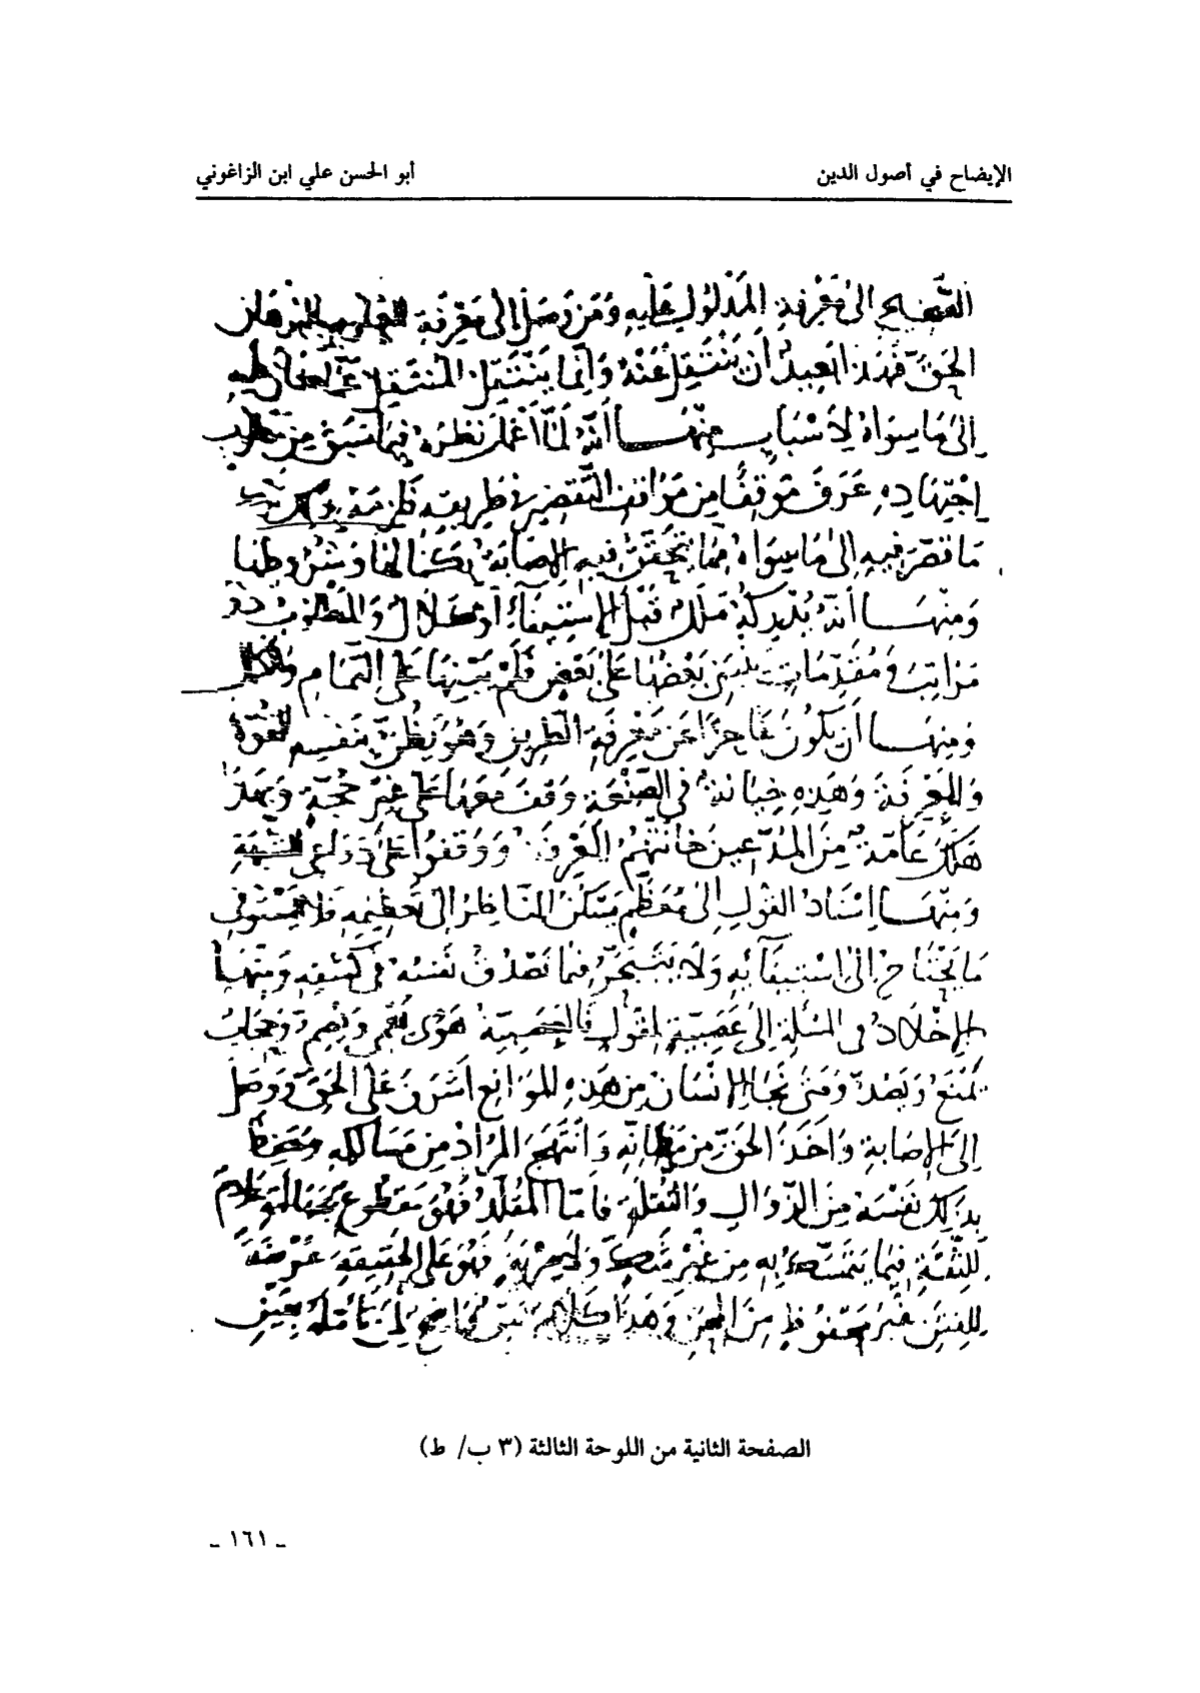 الإيضاح في أصول الدين
أبو الحسن علي ابن الزاغوني
الصحيح إلى مَعْرفةِ المَدْلُولِ عَلَيهِ وَمَن وَصَلَ إلى مَعْرِفَةِ
الحَقّ فبَعيدٌ أن يَنْتَقِلَ عَنْهُ وَانما يَنْتَقِلُ المُنْتَقِلُ عَن
إلى مَا سِوَاهُ لِأسْبَابٍ مِنْهَا أنَّهُ لَمَّا أعْمَلَ نَظَرَهُ فِيمَا سَبَقَ مِن
اجْتِهَادِهِ عَرَفَ مَوْقِفًا مِن مَوَاقف التَّقصِيرِ في طَرِيقِهِ فَلَزِمَهُ
مَا قصَّرَ فيهِ إلى مَا سِوَاهُ مِمَّا تحَقَّقَتْ فيهِ الإصَابَةُ بكَمَالِهَا وَشُرُوطِهَا
وَمِنْهَا أنّهُ يُدْرِكُهُ مَلَلٌ قَبْلَ الإسْتِيفَاءِ أوْ كَلَالٌ وَالمَطْلُوبُ ذُو
مَرَاتِبَ وَمُقَدِّمَاتٍ يَنْبَنِي بَعْضُهَا عَلَى بَعْضٍ فَلَمْ يَبْنِهَا عَلَى التَّمَامِ وَالكَمَالِ
وَمِنهَا أن يَكُونَ عَاجِزًا عَن مَعْرِفَةِ الطَّرِيقِ وَهُوَ يَظُنُّ بِنَفْسِهِ القُوّةَ
وَالمَعْرِفَةَ وَهَذِهِ خِيَانَةٌ في الصَّنْعَةِ وَقَفَ مَعَهَا عَلَى غَيْرِ حُجَّةٍ وَبِهَذَا
هَلَكَ عَامَّةٌ مِنَ المُدَّعِينَ خَانَتْهُم المَعْرِفَةُ وَوَقَفُوا عَلَى دَوَاعِي الشُّبْهَةِ
وَمِنْهَا إسْنَادُ القَوْلِ إلى مُعَظَّمٍ يَسْكُنُ المُنَاظِرُ إلى تَعْظِيمِهِ فَلَا يَسْتَوفِي
مَا يَحْتَاجُ إلى اسْتِيفَائِهِ وَلَا يَتَبَحَّرُ فِيمَا تَصْدُقُ نَفْسُهُ في كَشْفِهِ وَمِنْهَا
الإخْلَادُ في المَسْئلَةِ إلى عَصَبِيَّةٍ لِقَوْلٍ فَالعَصَبِيَّةُ هَوًى يُعْمِي وَيُصِمُّ وَحِجَابٌ
يَمْنَعُ وَيَصُدُّ وَمَتَى نَجَا الإنْسَانُ مِن هَذِهِ المَوَانِعِ أشْرَفَ عَلَى الحَقِّ وَوَصَلَ
إلى الإصَابَةِ وَأخَذَ الحَقَّ مِن مَظَانِّهِ وَانْتَهَجَ المُرَادَ مِن مَسَالِكِهِ وَحَفِظَ
بِذَلِكَ نَفْسَهُ مِنَ الزَّوَالِ وَالنُّقْلَةِ فَأمَّا المُقَلِّدُ فَهُوَ مَقْطُوعٌ
لِلثِّقَةِ فِيمَا يَتَمَسَّكُ بِهِ مِن غَيْرِ فَهُوَ عَلَى الحَقِيقَةِ عُرْضَةٌ
لِلفِتَنِ غَيْرُ مَحْفُوظٍ مِنَ المِحَنِ وَهَذَا كَلَامٌ بَيِّنٌ وَاضِحٌ لِمَنْ تَأمَّلَهُ بِعَيْنِ
الصفحة الثانية من اللوحة الثالثة (٣ ب/ ظ)
ـ ١٦١ ـ